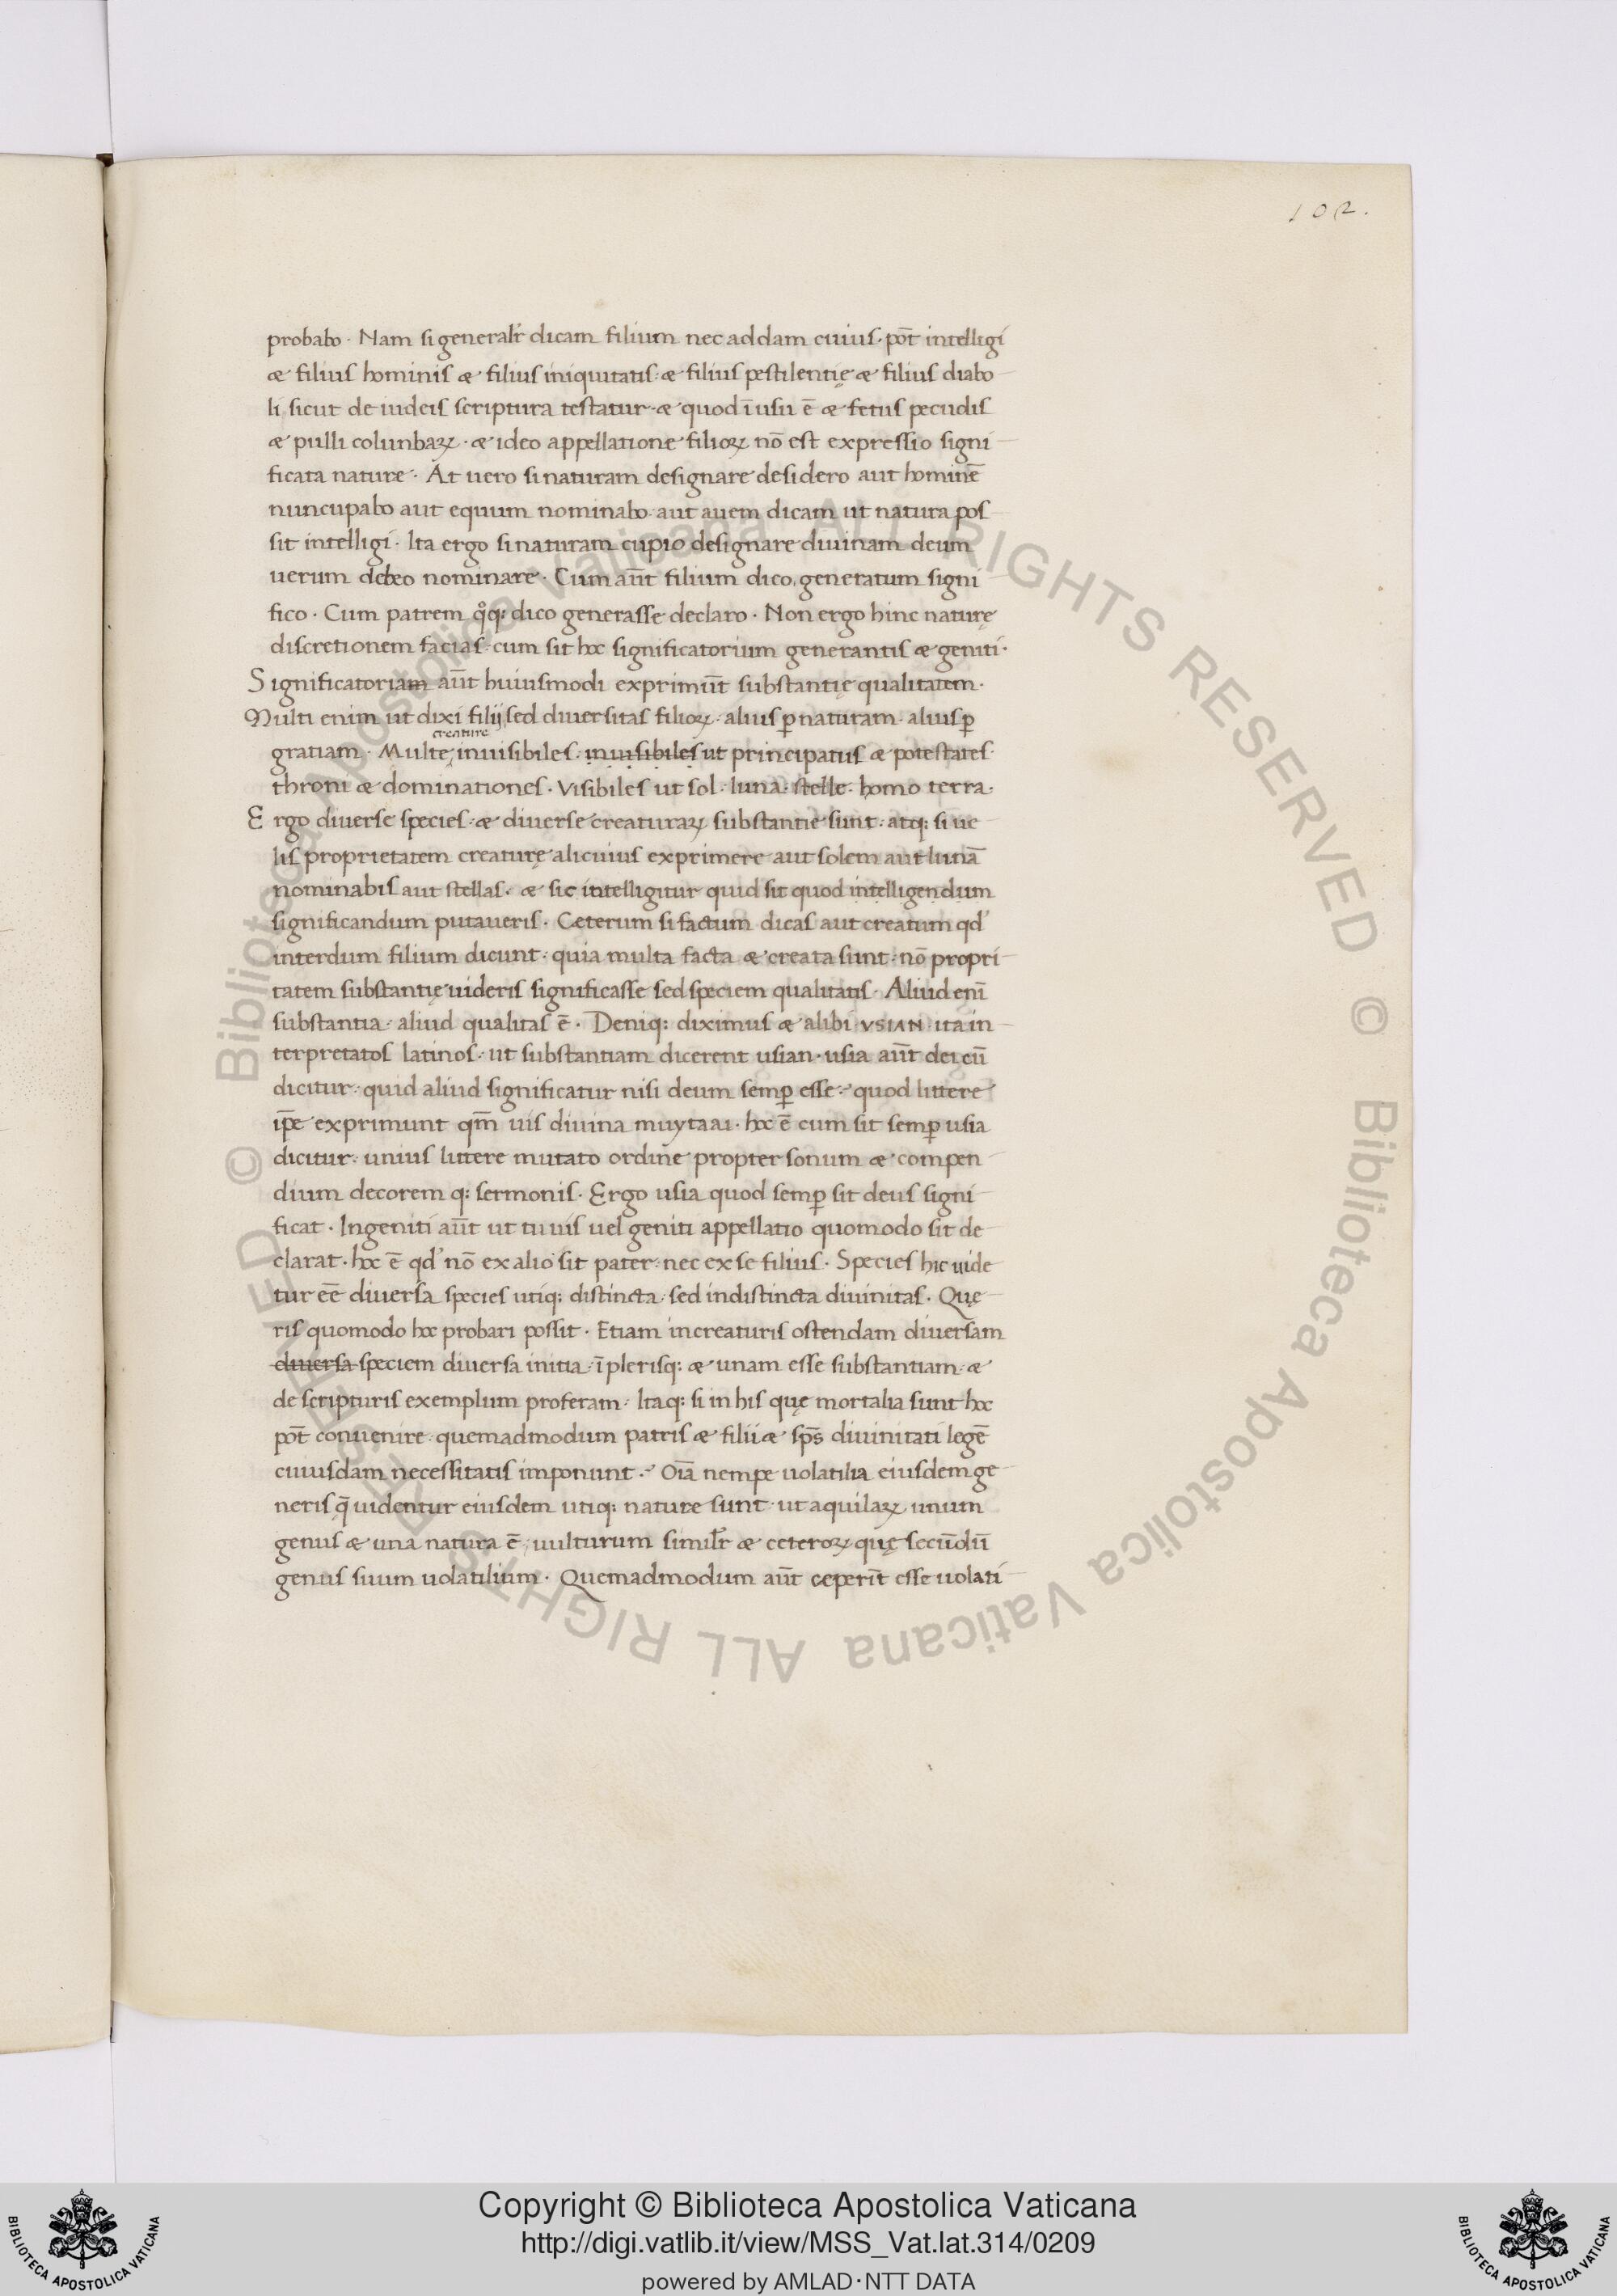 102.
probabo · Nam si generalr̃ dicam filium nec addam cuius · põt intelligi
æ filius hominis æ filius iniquitatis · æ filius pestilentię æ filius diabo
li sicut de iudeis scriptura testatur · æ quod ī usu ē æ fetus pecudis
æ pulli colunbaꝝ · æ ideo appellatione filioꝝ nō est expressio signi
ficata nature · At uero si naturam designare desidero aut hominē
nuncupabo aut equum nominabo · aut auem dicam ut natura pos
sit intelligi · Ita ergo si naturam cupio designare diuinam deum
uerum debeo nominare · Cum aūt filium dico, generatum signi
fico · Cum patrem qͦq: dico generasse declaro · Non ergo hinc naturę
discretionem facias · cum sit hoc significatorium generantis æ geniti ·
Significatoriam aūt huiusmodi exprimūt substantię qualitatem ·
Multi enim ut dixi filij, sed diuersitas filioꝝ · alius ꝑ naturam · alius ꝑ
creature
gratiam · Multe, inuisibiles · inuisibiles ut principatus æ potestates ·
throni æ dominationes · Visibiles ut sol · luna · stelle · homo terra ·
Ergo diuerse species · æ diuerse creaturaꝝ substantię sunt · atq: si ue
lis proprietatem creaturę alicuius exprimere aut solem aut lunā
nominabis aut stellas · æ sic intelligitur quid sit quod intelligendum
significandum putaueris · Ceterum si factum dicas aut creatum qd'
interdum filium dicunt · quia multa facta æ creata sunt · nō propri
tatem substantię uideris significasse sed speciem qualitatis · Aliud enī
substantia · aliud qualitas ē · Deniq: diximus æ alibi · VSIAN · ita in
terpretatos latinos · ut substantiam dicerent usian · usia aūt dei cū
dicitur · quid aliud significatur nisi deum semꝑ esse · quod littere
ip̄e exprimunt qm̄ uis diuina muytaai · hoc ē cum sit semꝑ usia
dicitur · unius littere mutato ordine propter sonum æ compen
dium decorem q: sermonis · Ergo usia quod semꝑ sit deus signi
ficat · Ingeniti aūt ut tu uis uel geniti appellatio quomodo sit de
clarat · hoc ē qd' nō ex alio sit pater · nec ex se filius · Species hic uide
tur eē diuersa species utiq: distincta · sed indistincta diuinitas · Quę
ris quomodo hoc probari possit · Etiam in creaturis ostendam diuersam
diuersa speciem diuersa initia · ī plerisq: æ unam esse substantiam · æ
de scripturis exemplum proferam · Itaq: si in his quę mortalia sunt hoc
põt conuenire · quemadmodum patris æ filii æ sp̄s diuinitati legē
cuiusdam necessitatis imponunt · Oīa nempe uolatilia eiusdem ge
neris q̄ uidentur eiusdem utiq: nature sunt · ut aquilaꝝ unum
genus æ una natura ē, uulturum similr̃ æ ceteroꝝ quę secūdū
genus suum uolatilium · Quemadmodum aūt ceperīt esse uolati
© Biblioteca Apostolica Vaticana ALL RIGHTS RESERVED © Biblioteca Apostolica Vaticana ALL RIGHTS RESERVED
Copyright © Biblioteca Apostolica Vaticana
http://digi.vatlib.it/view/MSS_Vat.lat.314/0209
powered by AMLAD·NTT DATA
BIBLIOTECA APOSTOLICA VATICANA
BIBLIOTECA APOSTOLICA VATICANA